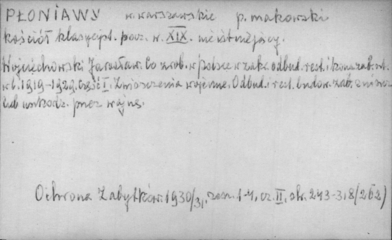 PŁONIAWY w. warszawskie p. makowski
kościół klasycyst. pocz. w. XIX. nie istniejący.
Wojciechowski Jarosław. Co zrob. w Polsce w zakr. odbud. rest. i konserw.
w l. 1919-1929. Część I. Zniszczenia wojenne. Odbud. i rest. budow. zab. zniszcz.
lub uszkodz. przez wojnę.
Ochrona Zabytków. 1930/31, zesz. 1-4, cz. II, str. 243-318 (262)